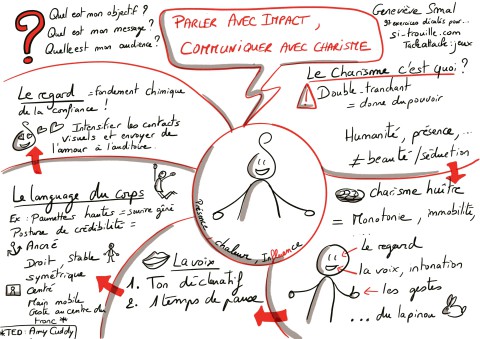 Quel est mon objectif ?
Quel est mon message ?
Quelle est mon audience ?
PARLER AVEC IMPACT,
COMMUNIQUER AVEC CHARISME
Geneviève Smal
si-trouille.com
Le Charisme c'est quoi ?
Double-tranchant
= donne du pouvoir
Humanité, présence, ...
≠ beauté / séduction
charisme huître
= Monotonie, immobilité,
Le regard = fondement chimique
de la confiance !
Intensifier les contacts
visuels et envoyer de
l'amour à l'auditoire.
Le language du corps
Ex : Paumettes hautes = sourire géré
Posture de crédibilité =
Ancré
Droit, stable
symétrique
Centré
Main mobile
Geste au centre du
tronc *
*TED: Amy Cuddy
Présence, chaleur, Influence
La voix
1. Ton déclaratif
2. 1 temps de pause
Le regard
la voix, intonation
les gestes
... du lapinou